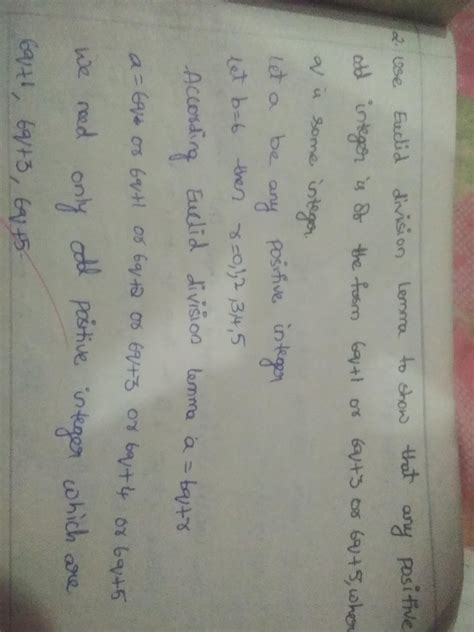 2. Use Euclid division lemma to show that any positive
odd integer is of the form 6q+1 or 6q+3 or 6q+5, wher
q is some integer.
let a be any positive integer
let b=6 then r=0,1,2,3,4,5
According Euclid division lemma a = bq+r
a = 6q or 6q+1 or 6q+2 or 6q+3 or 6q+4 or 6q+5
we need only odd positive integer which are
6q+1, 6q+3, 6q+5